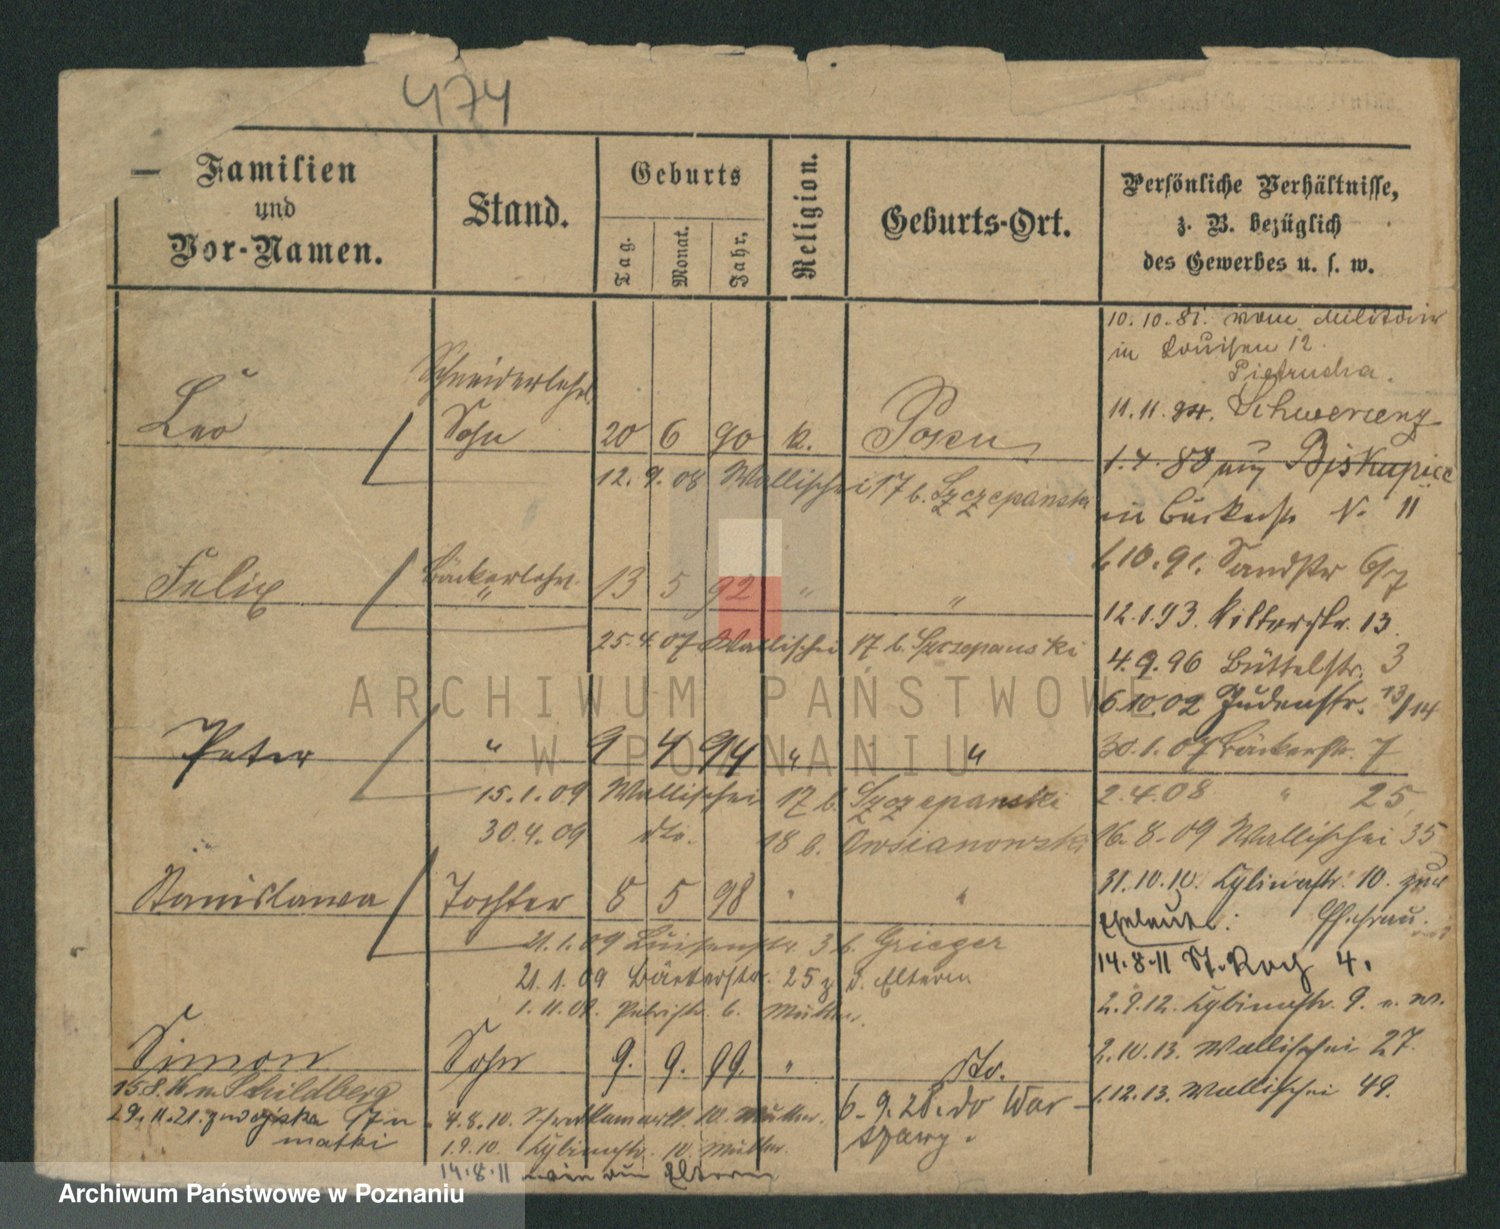 474
Familien
und
Vor-Namen.
Stand.
Geburts
Tag.
Monat.
Jahr.
Religion.
Geburts-Ort.
Persönliche Verhältnisse,
z. B. bezüglich
des Gewerbes u. s. w.
10.10.81. vom Militair
in Louisen 12
Pietrucha.
11.11. Schwersenz
1.7.88 aus Biskupice
in Bäckerstr N. 11
1.10.91. Sandstr 6/7
12.1.93. Ritterstr. 13.
4.9.96 Büttelstr. 3
6.10.02 Judenstr. 13/14
30.1.07 Bäckerstr. 7
2.4.08 " 25
16.8.09 Wallischei 35
31.10.10. Cybinastr. 10.
Eheleute. Ehefrau.
14.8.11 St. Roch 4.
2.9.12. Cybinastr. 9.
2.10.13. Wallischei 27.
1.12.13. Wallischei 49.
Schneiderlehrl.
Leo Sohn 20 6 90 k. Posen
12.9.08 Wallischei 17 b. Szczepanski
Felix Bäckerlehrl. " 13 5 92 " "
25.4.07 Wallischei 17 b. Szczepanski
Peter " 9 4 94 " "
15.1.09 Wallischei 17 b. Szczepanski
30.4.09 dto. 18 b. Owsianowski
Stanislawa Tochter 8 5 98 " "
21.1.09 Luisenstr. 3 b. Grieger
21.1.09 Bäckerstr. 25 z. d. Eltern
1.11.09. Petristr. 6. Müller.
Simon Sohn 9. 9. 99. " dto.
Schildberg
29.11.21. z wojska 17
matki
4.8.10. 10. Mutter.
1.9.10. Cybinastr. 10. Mutter.
14.8.11 Eltern
6.9.28. do War-
szawy.
ARCHIWUM PAŃSTWOWE
W POZNANIU
Archiwum Państwowe w Poznaniu